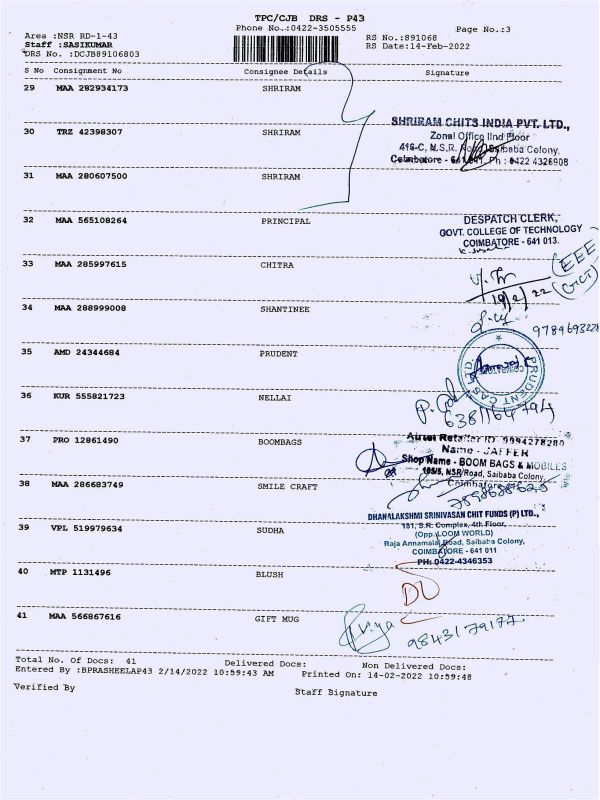 TPC/CJB DRS - P43
Phone No.:0422-3505555
Page No.:3
Area :NSR RD-1-43
RS No.:891068
Staff :SASIKUMAR
RS Date:14-Feb-2022
DRS No. :DCJB89106803
S No Consignment No Consignee Details Signature
29 MAA 282934173 SHRIRAM
SHRIRAM CHITS INDIA PVT. LTD.,
30 TRZ 42398307 SHRIRAM
Zonal Office IInd Floor
416-C, N.S.R. Road, Saibaba Colony,
Coimbatore - 641 011. Ph : 0422 4326908
31 MAA 280607500 SHRIRAM
32 MAA 565108264 PRINCIPAL
DESPATCH CLERK,
GOVT. COLLEGE OF TECHNOLOGY
COIMBATORE - 641 013.
33 MAA 285997615 CHITRA
EEE
(GCT)
14/2/22
34 MAA 288999008 SHANTINEE
35 AMD 24344684 PRUDENT
PRUDENT CAS
36 KUR 555821723 NELLAI
6381164794
37 PRO 12861490 BOOMBAGS
Airtel Retailer ID 9994278280
Name - JAFFER
Shop Name - BOOM BAGS & MOBILES
105/5, NSR/Road, Saibaba Colony,
Coimbatore
38 MAA 286683749 SMILE CRAFT
39 VPL 519979634 SUDHA
DHANALAKSHMI SRINIVASAN CHIT FUNDS (P) LTD.,
131, S.R. Complex, 4th Floor,
(Opp. LOOM WORLD)
Raja Annamalai Road, Saibaba Colony,
COIMBATORE - 641 011
PH: 0422-4346353
40 MTP 1131496 BLUSH
41 MAA 566867616 GIFT MUG
Priya
9843179177
Total No. Of Docs: 41 Delivered Docs: Non Delivered Docs:
Entered By :BPRASHEELAP43 2/14/2022 10:59:43 AM Printed On: 14-02-2022 10:59:48
Verified By Staff Signature